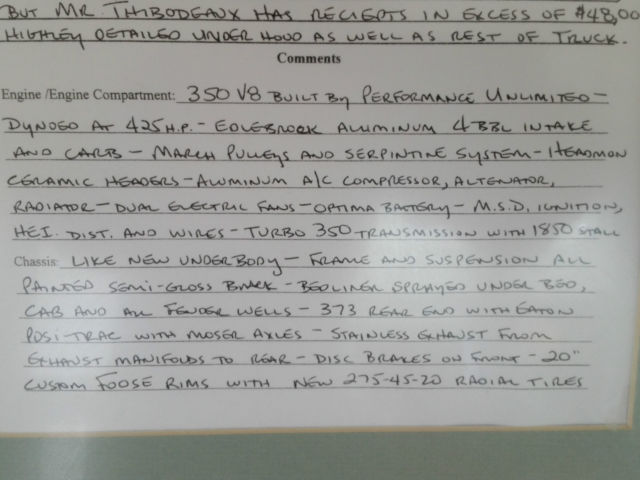 BUT MR. THIBODEAUX HAS RECIEPTS IN EXCESS OF $48,00
HIGHLEY DETAILED UNDER HOOD AS WELL AS REST OF TRUCK.
Comments
Engine /Engine Compartment: 350 V8 BUILT BY PERFORMANCE UNLIMITED -
DYNOED AT 425 H.P. - EDLEBROCK ALUMINUM 4BBL INTAKE
AND CARB - MARCH PULLEYS AND SERPINTINE SYSTEM - HEADMON
CERAMIC HEADERS - ALUMINUM A/C COMPRESSOR, ALTENATOR,
RADIATOR - DUAL ELECTRIC FANS - OPTIMA BATTERY - M.S.D. IGNITION,
HEI. DIST. AND WIRES - TURBO 350 TRANSMISSION WITH 1850 STALL
Chassis: LIKE NEW UNDERBODY - FRAME AND SUSPENSION ALL
PAINTED SEMI-GLOSS BLACK - BEDLINER SPRAYED UNDER BED,
CAB AND ALL FENDER WELLS - 373 REAR END WITH EATON
POSI-TRAC WITH MOSER AXLES - STAINLESS EXHAUST FROM
EXHAUST MANIFOLDS TO REAR - DISC BRAKES ON FRONT - 20"
CUSTOM FOOSE RIMS WITH NEW 275-45-20 RADIAL TIRES